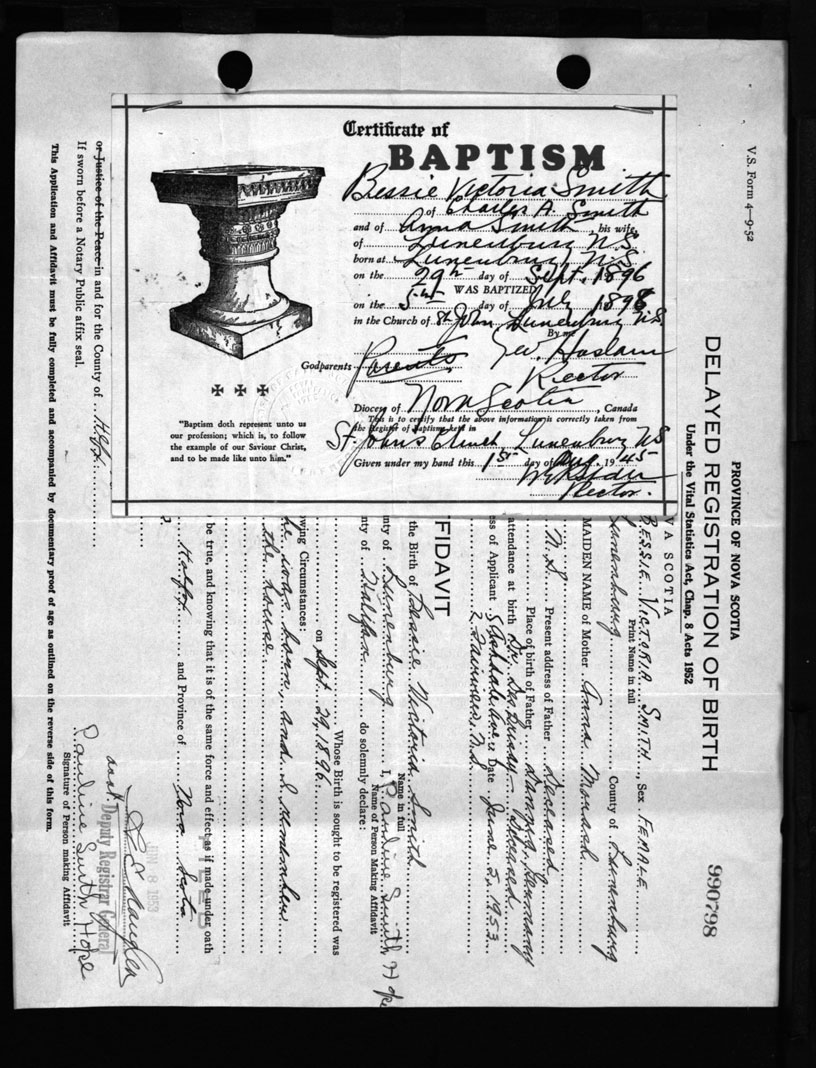 Certificate of
BAPTISM
Bessie Victoria Smith
of Charles A. Smith
and of Anna Smith, his wife,
of Lunenburg N.S.
born at Lunenburg, N.S.
on the 29th day of Sept. 1896
WAS BAPTIZED
on the 5th day of July 1898
in the Church of St. John Lunenburg N.S.
By me
Geo. Haslam
Godparents Parents
Rector
Diocese of Nova Scotia, Canada
This is to certify that the above information is correctly taken from
the Register of Baptisms kept in
St. John's Church, Lunenburg NS
Given under my hand this 1st day of Aug. 1945
Rector.
"Baptism doth represent unto us
our profession; which is, to follow
the example of our Saviour Christ,
and to be made like unto him."
V.S. Form 4—9-52
PROVINCE OF NOVA SCOTIA
DELAYED REGISTRATION OF BIRTH
Under the Vital Statistics Act, Chap. 8 Acts 1952
990798
VA SCOTIA
BESSIE VICTORIA SMITH, Sex FEMALE
Print Name in full
Lunenburg County of Lunenburg
MAIDEN NAME of Mother Anna
N.S. Present address of Father Deceased
Place of birth of Father Danzig, Germany
attendance at birth Dr. DesBrisay - Deceased
ess of Applicant 5 Ave Date June 5, 1953
2 N.S.
FIDAVIT
the Birth of Bessie Victoria Smith
Name in full
nty of Lunenburg I, Pauline Smith Hope
Name of Person Making Affidavit
nty of Halifax do solemnly declare:
Whose Birth is sought to be registered was
on Sept 29, 1896
wing Circumstances:
he was born, and I remember
the house
be true, and knowing that it is of the same force and effect as if made under oath
FILED
Halifax and Province of Nova Scotia
JUN 8 1953
asst Deputy Registrar General
Pauline Smith Hope
Signature of Person making Affidavit
or Justice of the Peace in and for the County of Hlfx
If sworn before a Notary Public affix seal.
This Application and Affidavit must be fully completed and accompanied by documentary proof of age as outlined on the reverse side of this form.